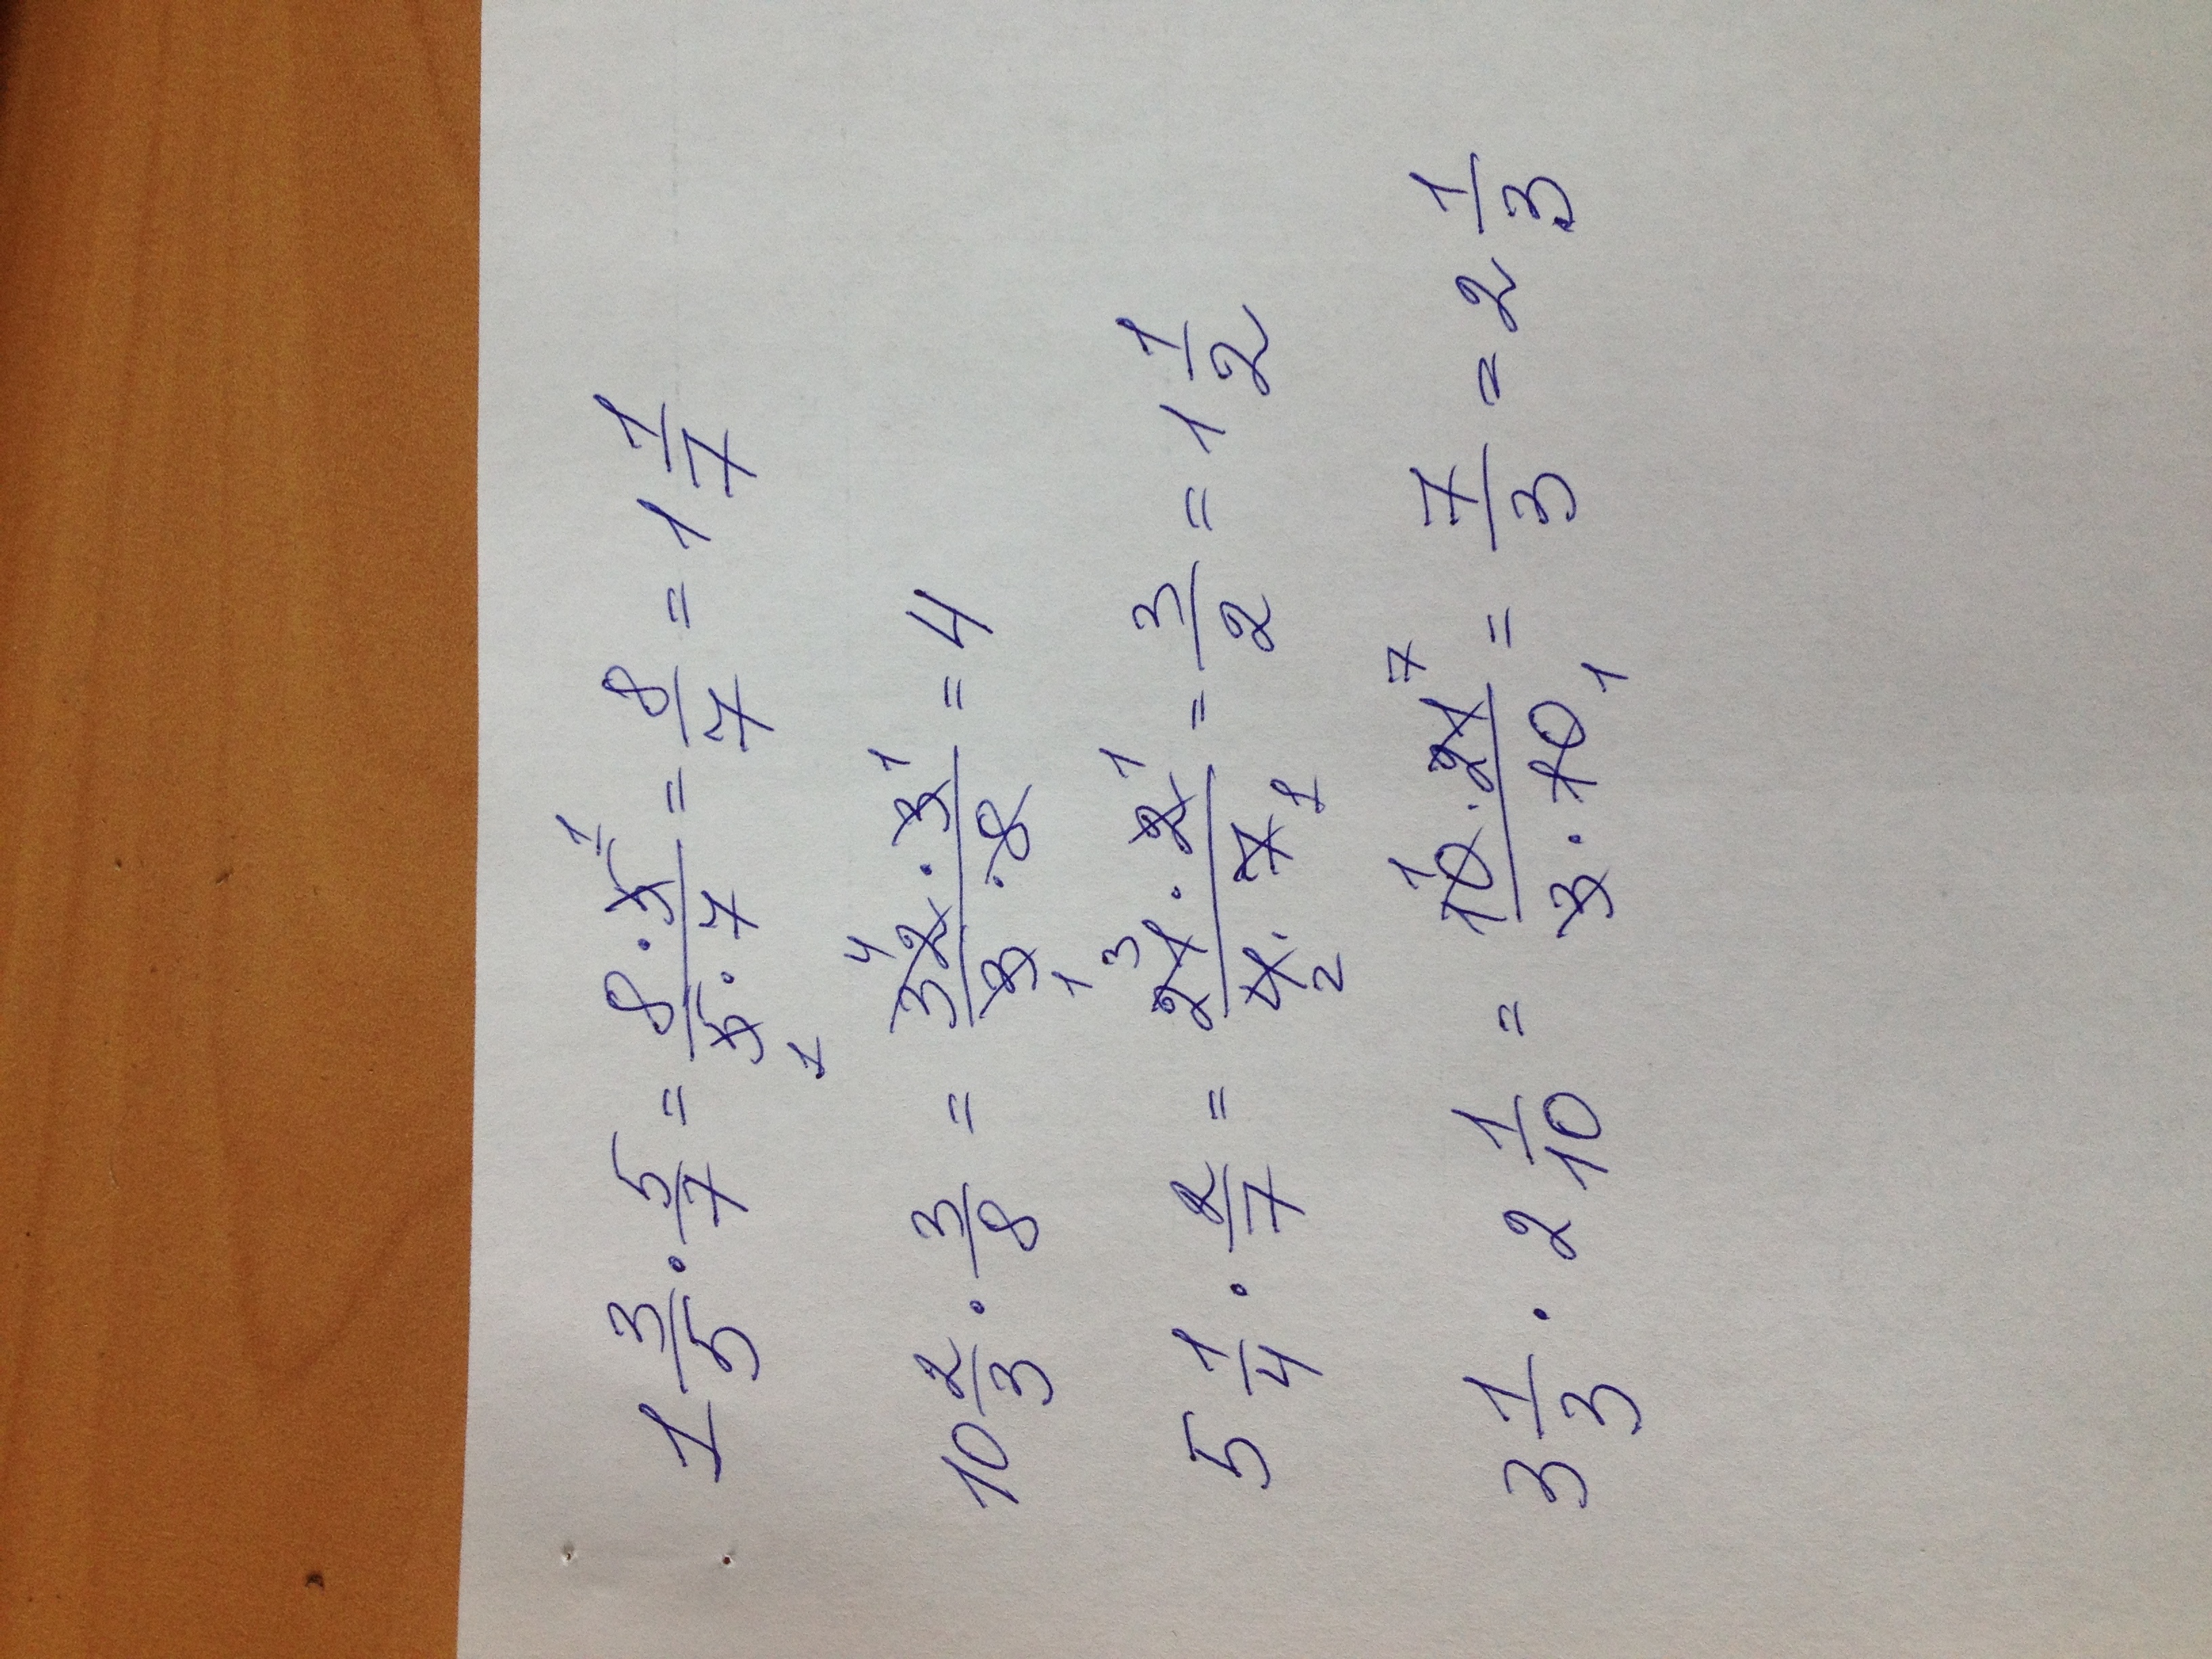 1 3/5 · 5/7 = 8·5/5·7 = 8/7 = 1 1/7
10 2/3 · 3/8 = 32·3/3·8 = 4
5 1/4 · 2/7 = 21·2/4·7 = 3/2 = 1 1/2
3 1/3 · 2 1/10 = 10·21/3·10 = 7/3 = 2 1/3